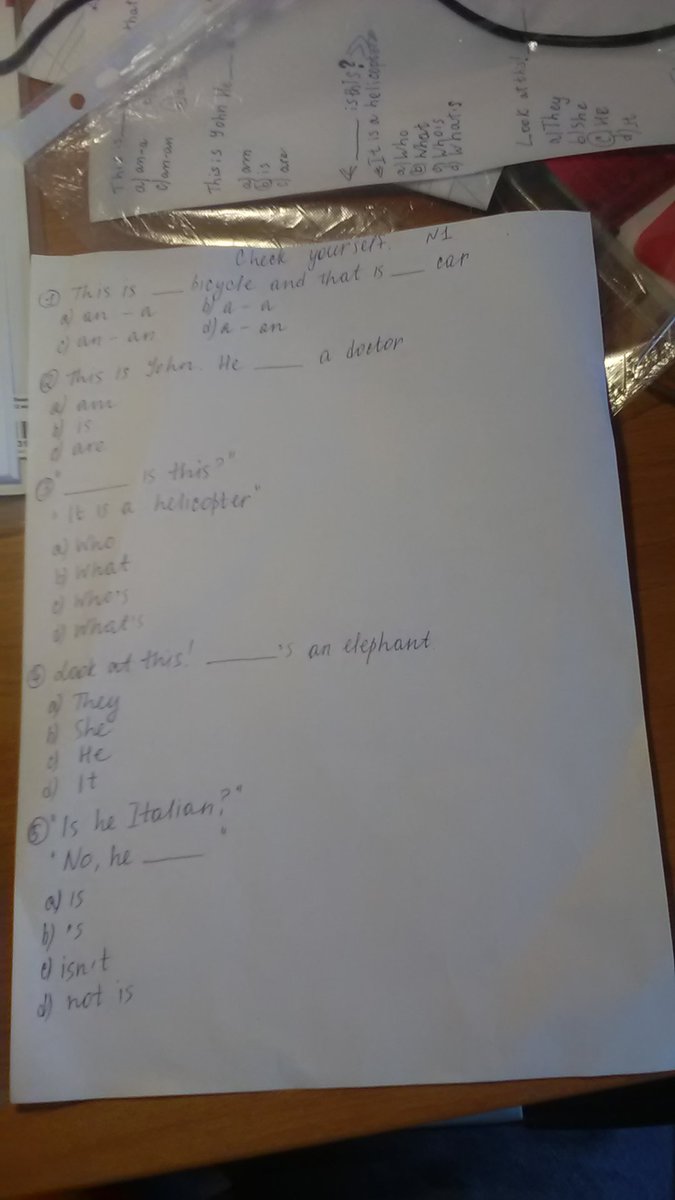 Check yourself. N1
① This is ___ bicycle and that is ___ car
a) an - a b) a - a
c) an - an d) a - an
② This is John. He ___ a doctor
a) am
b) is
c) are
③ "___ is this?"
"It is a helicopter"
a) Who
b) What
c) Who's
d) What's
④ Look at this! ___'s an elephant.
a) They
b) She
c) He
d) It
⑤ "Is he Italian?"
"No, he ___"
a) is
b) 's
c) isn't
d) not is
This is
that
a) an-a
c) an-an
This is John He
a) am
b) is
c) are
is this?
It is a helicopter
a) Who
b) What
c) Who is
d) What is
Look at that
a) They
b) She
c) He
d) It